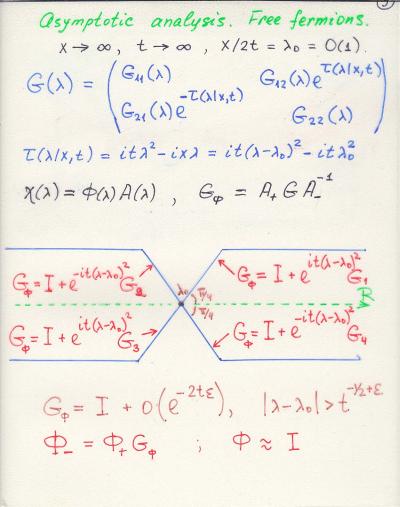 Asymptotic analysis. Free fermions.
x → ∞, t → ∞, x/2t = λ₀ = O(1).
G(λ) = ( G₁₁(λ) G₁₂(λ)e^{τ(λ|x,t)}
G₂₁(λ)e^{-τ(λ|x,t)} G₂₂(λ) )
τ(λ|x,t) = itλ² - ixλ = it(λ-λ₀)² - itλ₀²
χ(λ) = Φ(λ)A(λ), G_Φ = A₊ G A₋⁻¹
G_Φ = I + e^{-it(λ-λ₀)²}G₂
G_Φ = I + e^{it(λ-λ₀)²}G₁
λ₀ π/4 π/4 R
G_Φ = I + e^{it(λ-λ₀)²}G₃
G_Φ = I + e^{-it(λ-λ₀)²}G₄
G_Φ = I + o(e^{-2tε}), |λ-λ₀| > t^{-1/2+ε}
Φ₋ = Φ₊ G_Φ ; Φ ≈ I